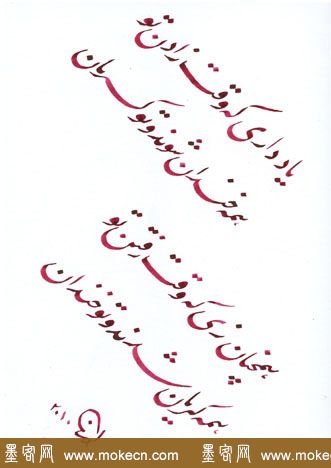 یاد داری که وقت زادن تو
همه خندان شوند و تو گریان
همچنان زی که وقت رفتن تو
همه گریان شوند و تو خندان
۲۰۱۰
墨客网 www.mokecn.com 墨客网 www.mokecn.com